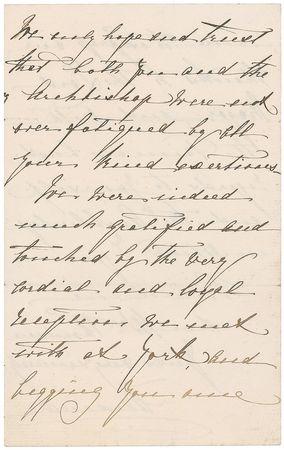 We only hope and trust
that both you and the
Archbishop were not
over fatigued by all
your kind exertions
We were indeed
much gratified and
touched by the very
cordial and loyal
reception we met
with at York, and
begging you once